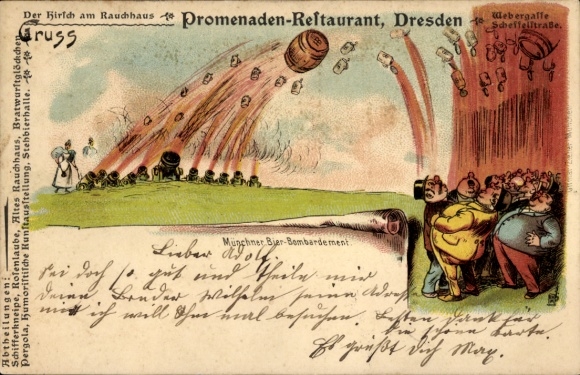 Der Hirsch am Rauchhaus
Promenaden-Restaurant, Dresden
Webergasse
Scheffelstraße.
Gruss
Abtheilungen:
Schifferkneipe, Rosenlaube, Altes Rauchhaus, Bratwurstglöckchen
Pergola, Humoristische Kunstausstellung, Stehbierhalle.
Münchner Bier-Bombardement.
Lieber Adolf.
Sei doch so gut und theile mir
deine Bruder Wilhelm seine Adres
mit ich will ihn mal besuchen. Besten Dank für
die schöne Karte.
Es grüßt dich Max.